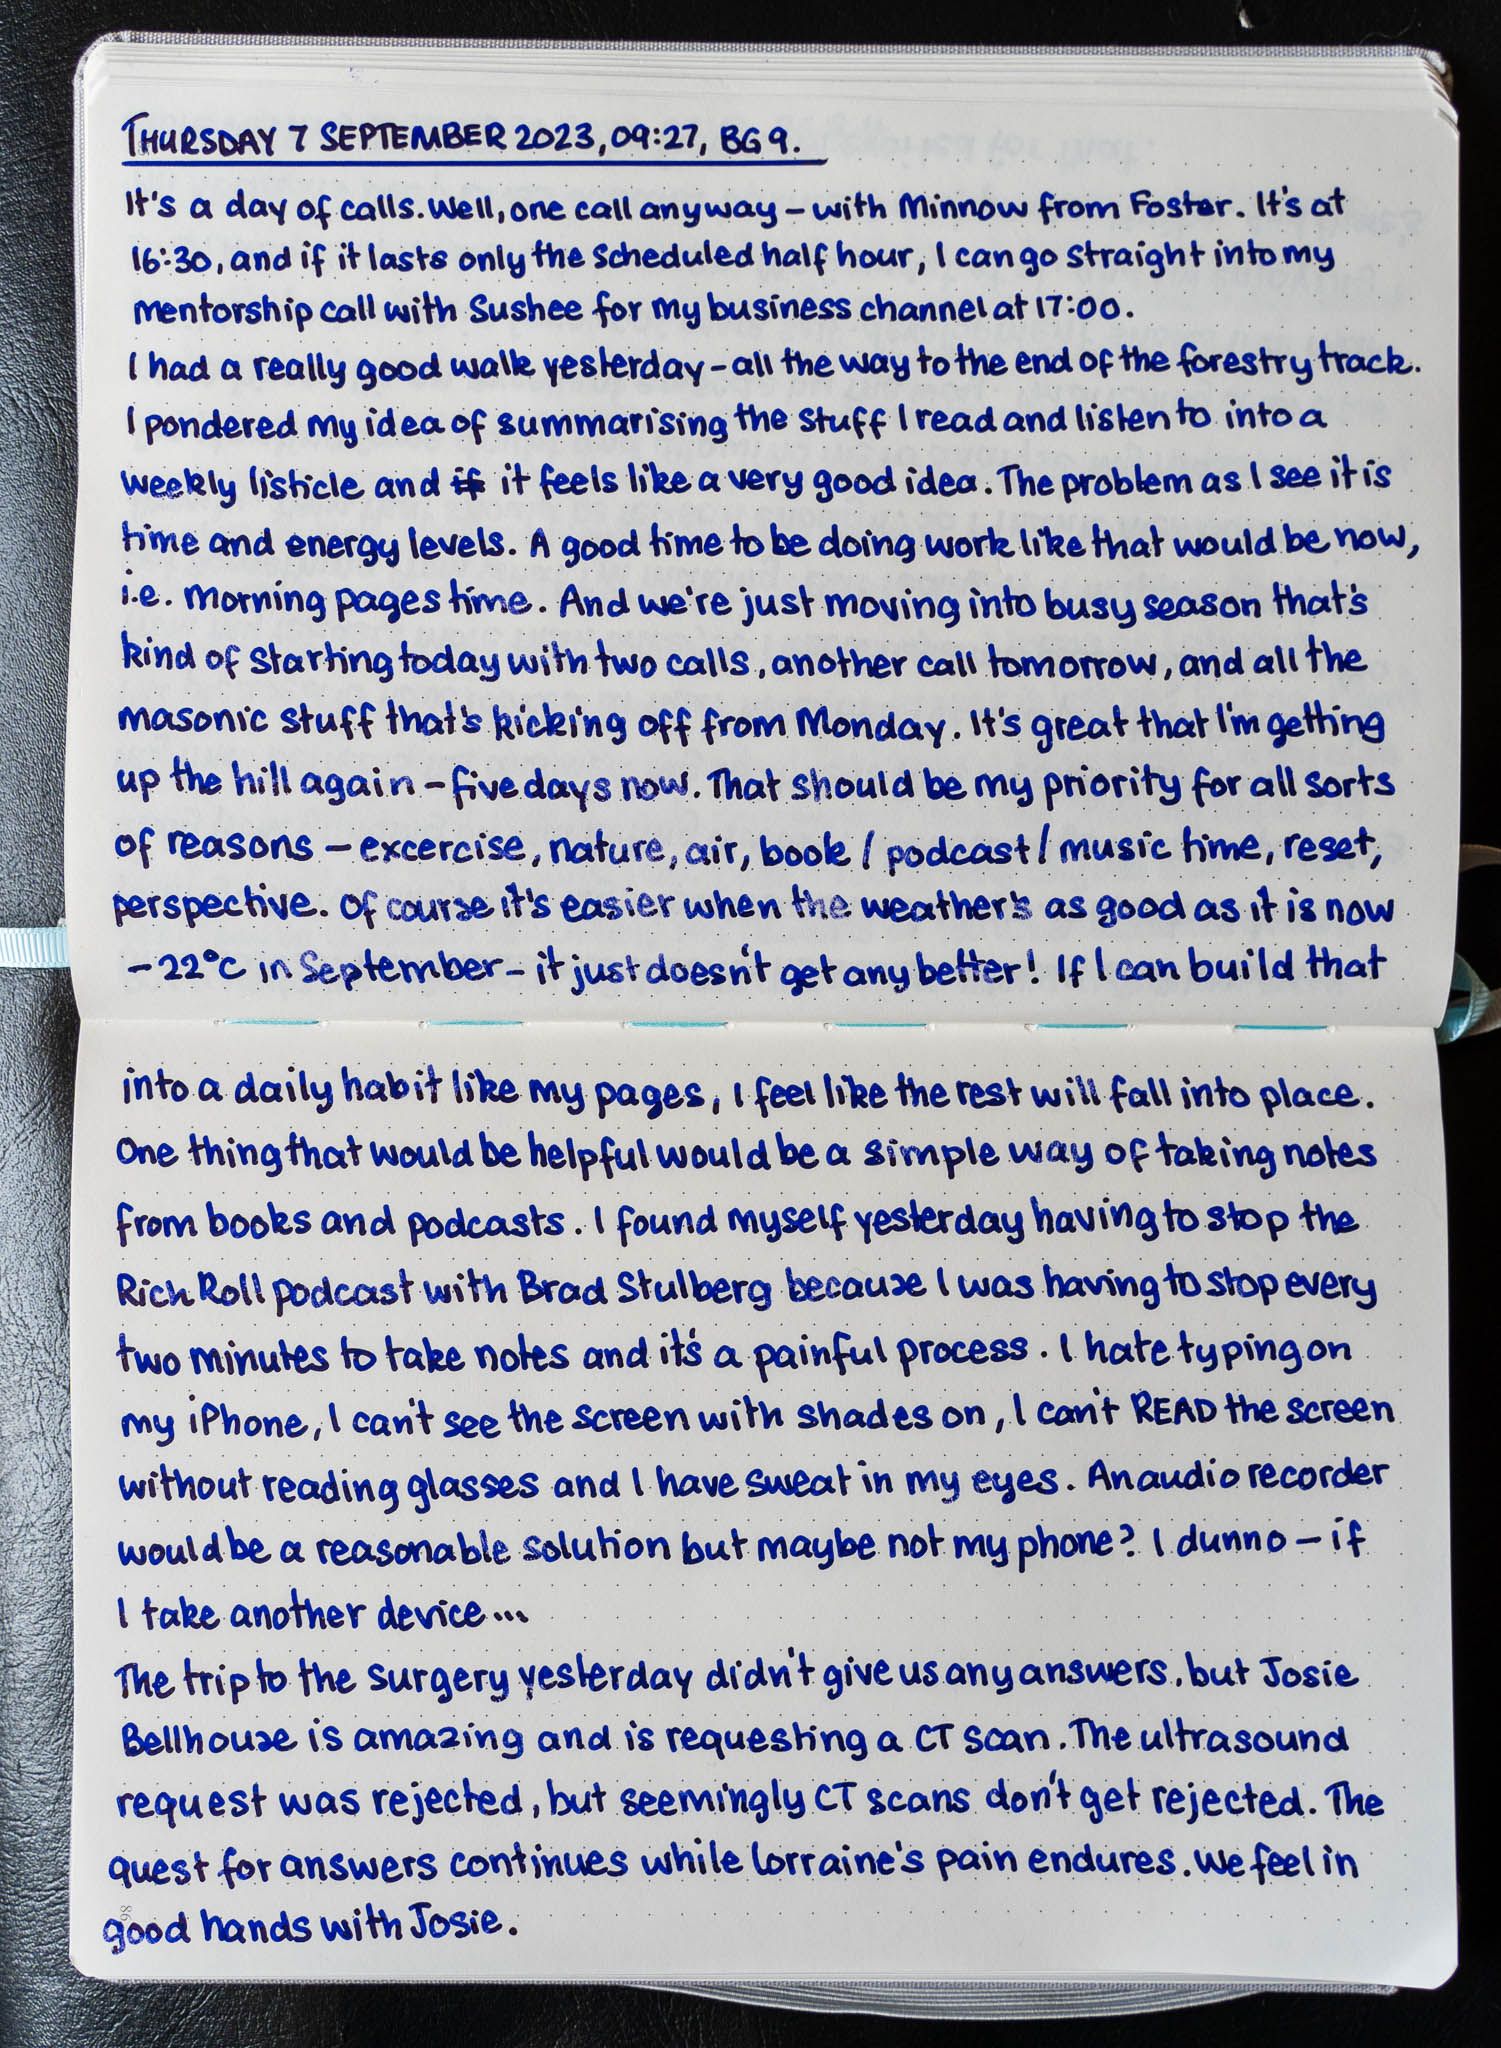 THURSDAY 7 SEPTEMBER 2023, 09:27, BG9.
It's a day of calls. Well, one call anyway – with Minnow from Foster. It's at
16:30, and if it lasts only the scheduled half hour, I can go straight into my
mentorship call with Sushee for my business channel at 17:00.
I had a really good walk yesterday – all the way to the end of the forestry track.
I pondered my idea of summarising the stuff I read and listen to into a
weekly listicle and if it feels like a very good idea. The problem as I see it is
time and energy levels. A good time to be doing work like that would be now,
i.e. morning pages time. And we're just moving into busy season that's
kind of starting today with two calls, another call tomorrow, and all the
masonic stuff that's kicking off from Monday. It's great that I'm getting
up the hill again – five days now. That should be my priority for all sorts
of reasons – excercise, nature, air, book / podcast / music time, reset,
perspective. Of course it's easier when the weather's as good as it is now
– 22°C in September – it just doesn't get any better! If I can build that
into a daily habit like my pages, I feel like the rest will fall into place.
One thing that would be helpful would be a simple way of taking notes
from books and podcasts. I found myself yesterday having to stop the
Rich Roll podcast with Brad Stulberg because I was having to stop every
two minutes to take notes and it's a painful process. I hate typing on
my iPhone, I can't see the screen with shades on, I can't READ the screen
without reading glasses and I have sweat in my eyes. An audio recorder
would be a reasonable solution but maybe not my phone? I dunno – if
I take another device...
The trip to the surgery yesterday didn't give us any answers, but Josie
Bellhouse is amazing and is requesting a CT scan. The ultrasound
request was rejected, but seemingly CT scans don't get rejected. The
quest for answers continues while Lorraine's pain endures. We feel in
good hands with Josie.